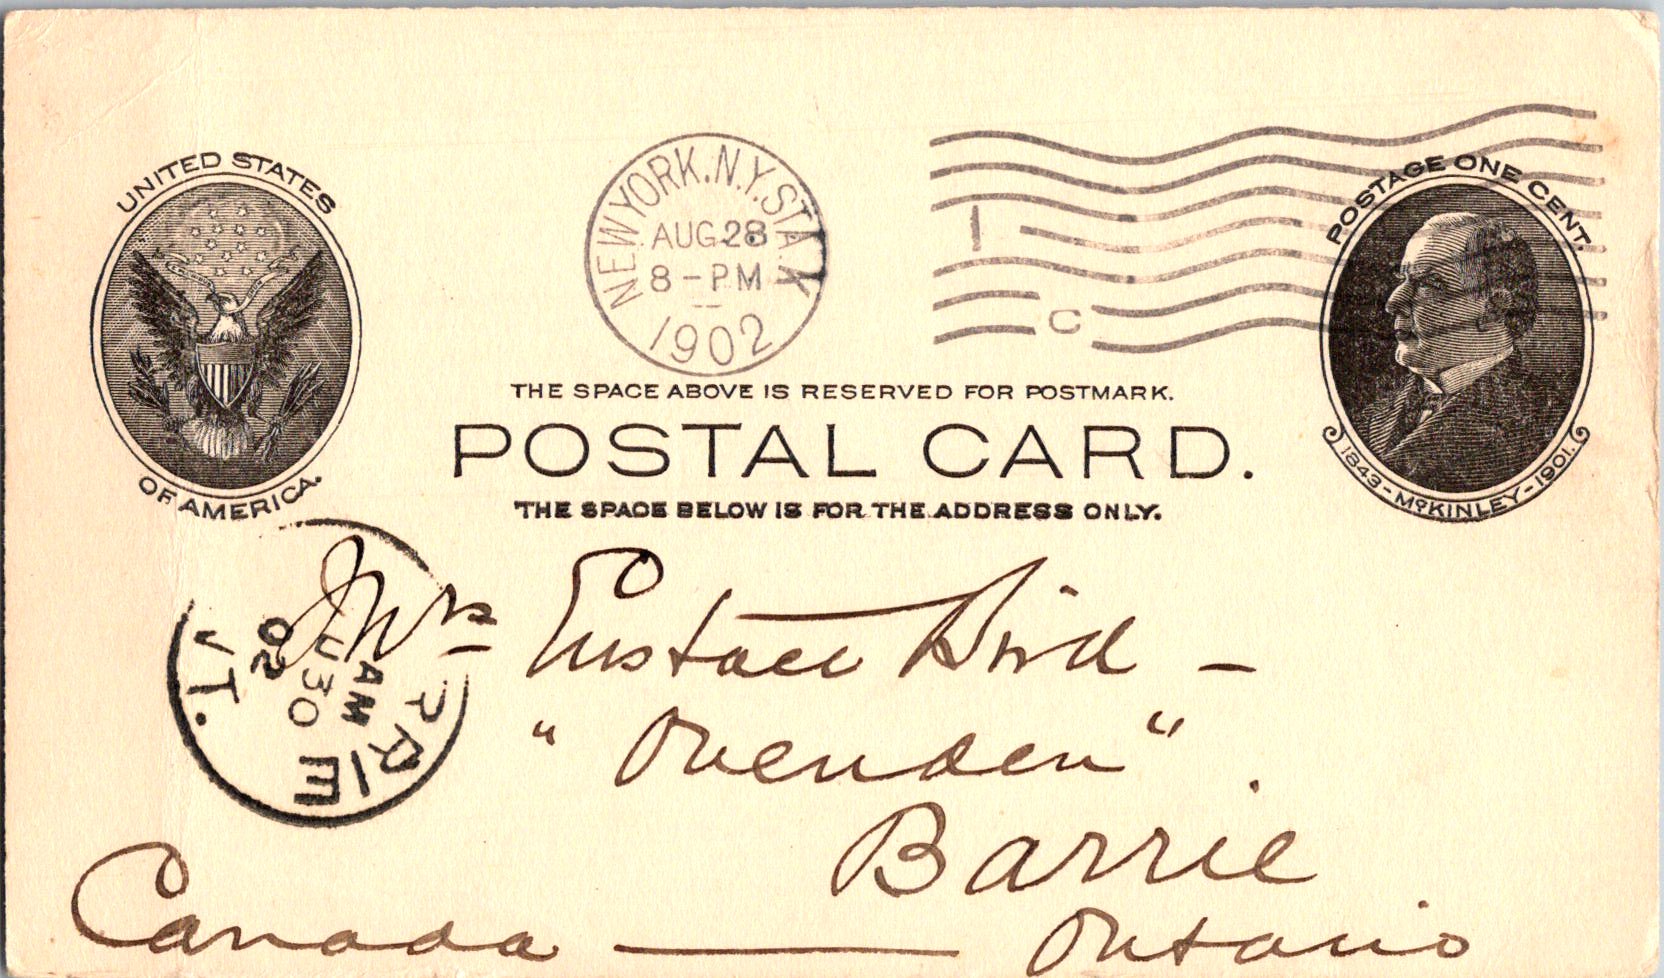 UNITED STATES
OF AMERICA.
NEW YORK, N.Y. STA. K
AUG 28
8-PM
1902
1
C
POSTAGE ONE CENT.
1843-McKINLEY-1901.
THE SPACE ABOVE IS RESERVED FOR POSTMARK.
POSTAL CARD.
THE SPACE BELOW IS FOR THE ADDRESS ONLY.
RRIE
AM
U 30
02
NT.
Mrs Eustace Bird -
"Ovenden".
Barrie
Canada — Ontario